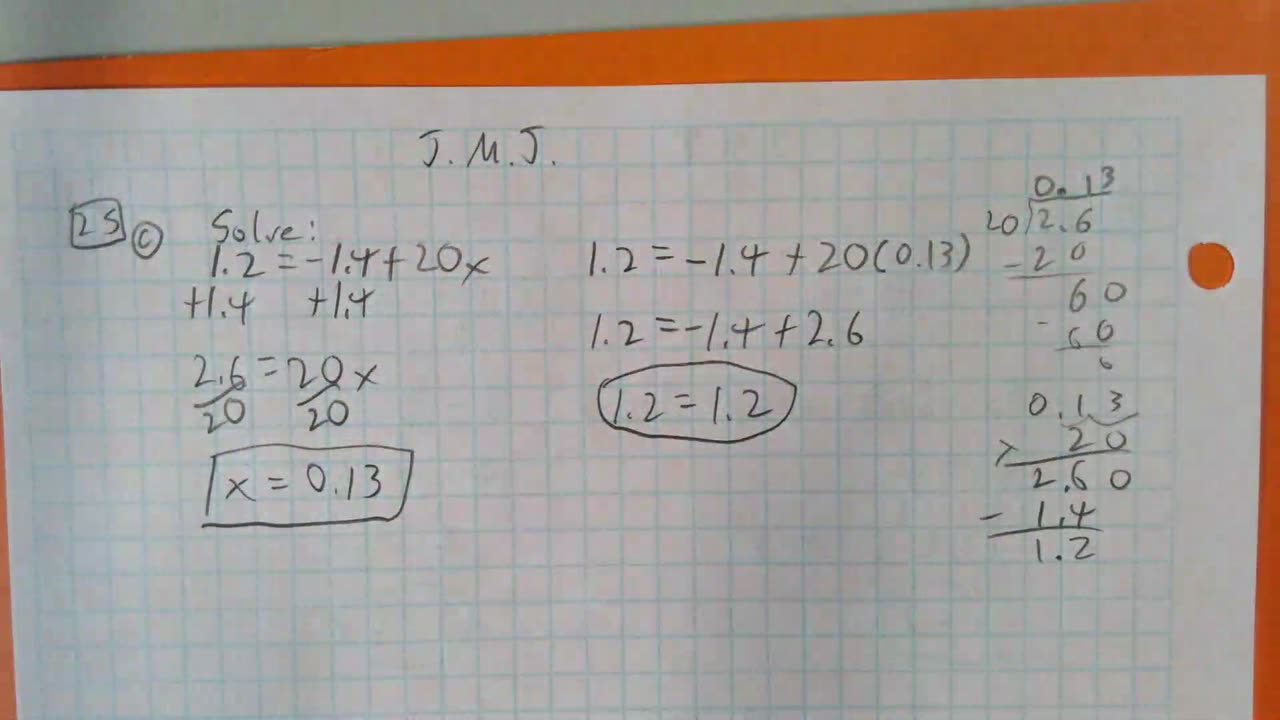 J.M.J.
25 c Solve:
1.2 = -1.4 + 20x
+1.4 +1.4
2.6 = 20x
20 20
x = 0.13
1.2 = -1.4 + 20(0.13)
1.2 = -1.4 + 2.6
1.2 = 1.2
0.13
20)2.6
-20
60
-60
0
0.13
× 20
2.60
- 1.4
1.2